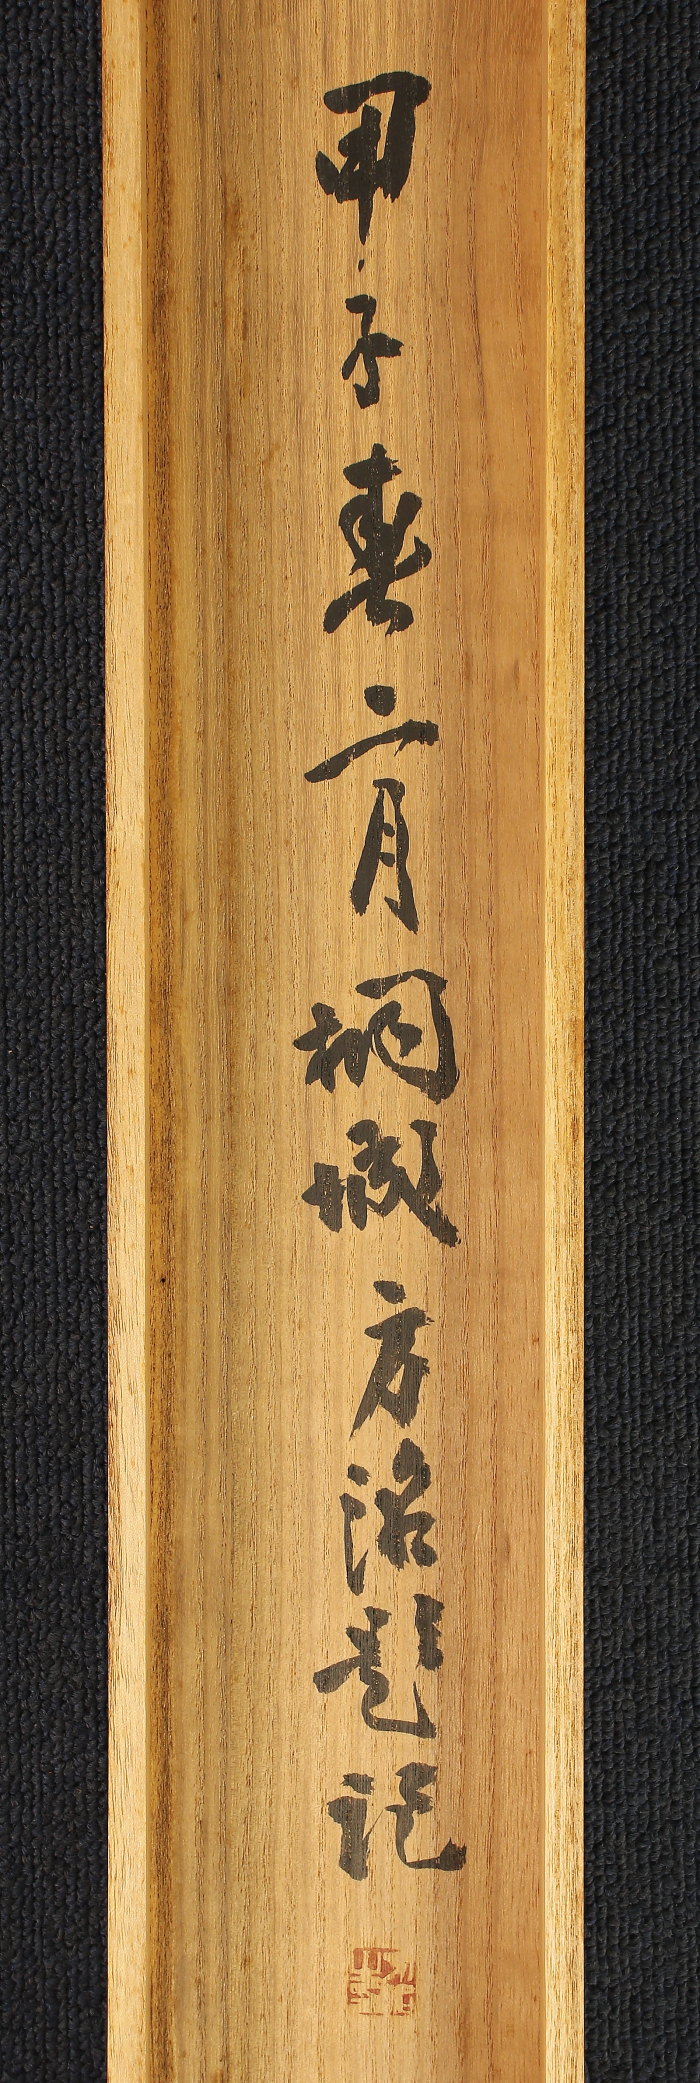 甲子春二月桐城方治題記